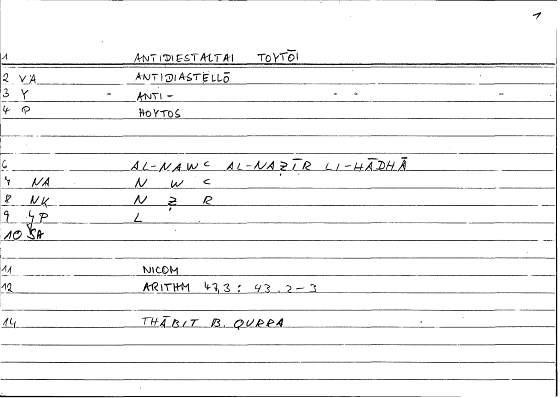 1
1 ANTIDIESTALTAI TOYTŌI
2 VA ANTIDIASTELLŌ
3 Y - ANTI-
4 P HOYTOS
6 AL-NAWC AL-NAẒĪR LI-HĀDHĀ
7 NA N W C
8 NK N Ẓ R
9 YP L
10 SA
11 NICOM
12 ARITHM 47,3 : 43.2-3
14 THĀBIT B. QURRA